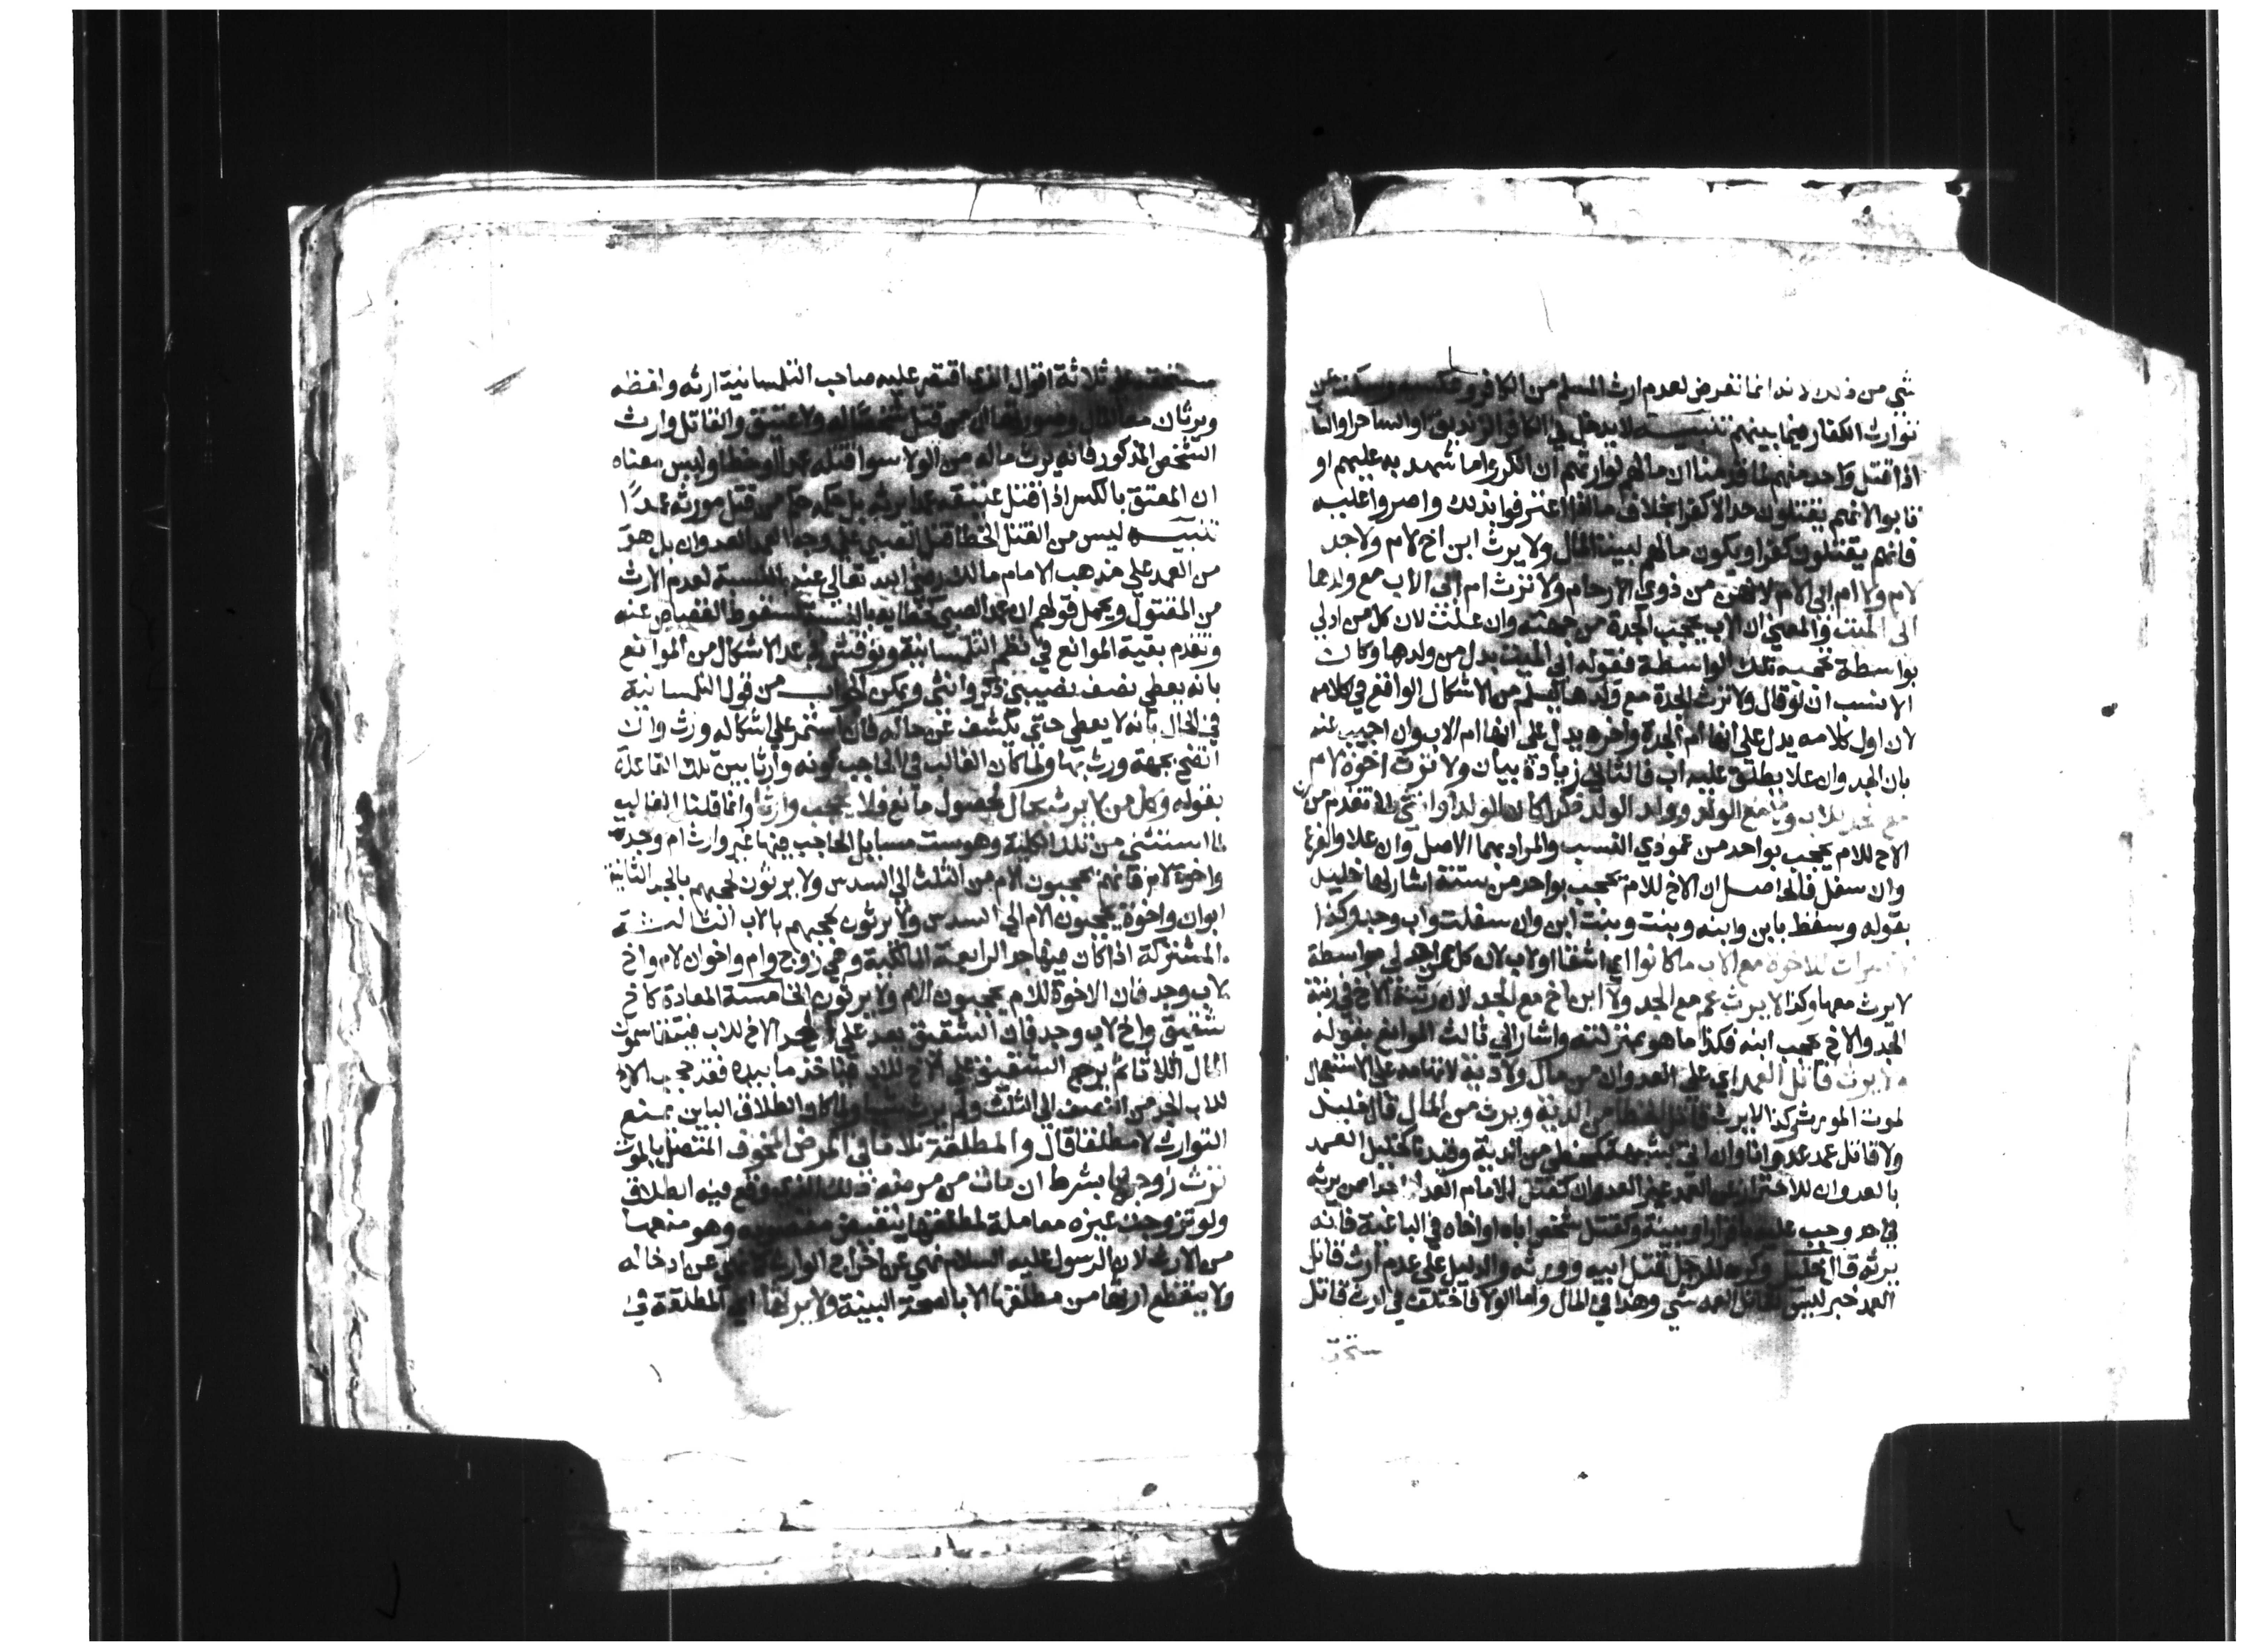 شي من ذلك وانما تعرض لعدم ارث المسلم من الكافر وعكسه وسكت عن
توارث الكفار فيما بينهم تنبيه لا يدخل في الكافر الزنديق او الساحر او الساب
اذا قتل واحد منهم لما قدمنا ان مالهم لوارثهم ان انكروا ما شهد به عليهم او
تابوا لانهم يقتلون حدا لا كفرا بخلاف ما اذا اعترفوا بذلك واصروا عليه
فانهم يقتلون كفرا ويكون مالهم لبيت المال ولا يرث ابن اخ لام ولا جد
لام ولا ام ابي الام لانهم من ذوي الارحام ولا ترث ام ابي الاب مع ولدها
ابي الميت والمعنى ان الاب يحجب الجدة من جهته وان علت لان كل من ادلى
بواسطة تحجبه تلك الواسطة فقوله ابي الميت بدل من ولدها وكان
الانسب ان لو قال ولا ترث الجدة مع ولدها ليسلم من الاشكال الواقع في كلامه
لان اول كلامه يدل على انها ام الجدة واخره يدل على انها ام الاب وان اجيب عنه
بان الجد وان علا يطلق عليه اب فالثاني زيادة بيان ولا ترث اخوة لام
مع جد للاب ولا مع الولد وولد الولد ذكرا كان الولد او انثى لما تقدم من ان
الاخ للام يحجب بواحد من عمودي النسب والمراد بهما الاصل وان علا والفرع
وان سفل فالحاصل ان الاخ للام يحجب بواحد من ستة اشار لها خليل
بقوله وسقط بابن وابنه وبنت وبنت ابن وان سفلت واب وجد وكذا
لا ميراث للاخوة مع الاب ما كانوا اي اشقا او لاب لان كل من ادلى بواسطة
لا يرث معها وكذا لا يرث عم مع الجد ولا ابن اخ مع الجد لان رتبة الاخ في رتبة
الجد والاخ يحجب ابنه فكذا ما هو بمنزلته واشار الى ثالث الموانع بقوله
ولا يرث قاتل العمد اي على العدوان من مال ولا دية لاتهامه على الاستعجال
لموت المورث وكذا لا يرث قاتل الخطا من الدية ويرث من المال قال خليل
ولا قاتل عمد عدوانا وان اتى بشبهة كمخطي من الدية وقيدنا كخليل العمد
بالعدوان للاحتراز عن العمد غير العدوان كقتل الامام العدل احدا ممن يرثه
في حد وجب عليه باقرار او بينة وكقتل شخص اباه او اخاه في الباغية فانه
يرثه قال خليل وكره للرجل قتل ابيه وورثه والدليل على عدم ارث قاتل
العمد خبر ليس لقاتل العمد شي وهذا في المال واما الولا فاختلف في ارث قاتل
ثلاثة اقوال الذي اقتصر عليه صاحب التلمسانية ارثه ولفظه
ويرثان معا المال قتل شخصا له ولا عتيق والقاتل وارث
الشخص المذكور فانه يرث ماله من الولا سوا قتله عمدا او خطا وليس معناه
ان المعتق بالكسر اذا قتل عتيقه عمدا يرثه بل حكمه حكم من قتل مورثه عمدا
تنبيه ليس من القتل الخطا قتل الصبي على وجه العمد العدوان بل هو
من العمد على مذهب الامام مالك رضي الله تعالى عنه بالنسبة لعدم الارث
من المقتول ويحمل قولهم ان عمد الصبي كخطايه بالنسبة لسقوط القصاص عنه
وتقدم بقية الموانع في نظم التلمسانية ونوقش في عد الاشكال من الموانع
بانه يعطى نصف نصيبي ذكر وانثى ويمكن الجواب من قول التلمسانية
في الحال بانه لا يعطى حتى يكشف عن حاله فان استمر على اشكاله ورث وان
اتضح بجهة ورث بها ولما كان الغالب في الحاجب كونه وارثا بين تلك القاعدة
بقوله وكل من لا يرث بحال لحصول مانع فلا يحجب وارثا وانما قلنا الغالب
لما استثني من تلك الكلية وهو ست مسايل الحاجب فيها غير وارث ام وجد
واخوة لام فانهم يحجبون الام من الثلث الى السدس ولا يرثون لحجبهم بالجد الثانية
ابوان واخوة يحجبون الام الى السدس ولا يرثون لحجبهم بالاب الثالثة
المشتركة اذا كان فيها جد الرابعة المالكية وهي زوج وام واخوان لام واخ
لاب وجد فان الاخوة للام يحجبون الام ولا يرثون الخامسة المعادة كاخ
شقيق واخ لاب وجد فان الشقيق يعد على الجد الاخ للاب فيتقاسموا
المال اثلاثا ثم يرجع الشقيق على الاخ للاب فياخذ ما بيده فقد حجب الاخ
للاب الجد من النصف الى الثلث ولم يرث شيا ولما كان الطلاق الباين يمنع
التوارث لا مطلقا قال والمطلقة ثلاثا في المرض المخوف المتصل بالموت
ترث زوجها بشرط ان مات من مرضه ذلك الذي وقع فيه الطلاق
ولو تزوجت غيره معاملة لمطلقها بنقيض مقصوده وهو منعها
من الارث لان الرسول عليه السلام نهى عن اخراج الوارث كما نهى عن ادخاله
ولا ينقطع ارثها من مطلقها الا بالصحة البينة ولا يرثها اي المطلقة في